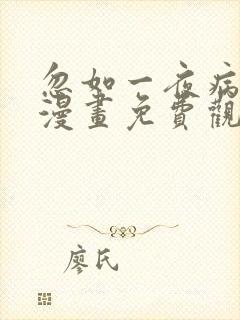 忽如一夜病
漫畫免費觀
廖氏